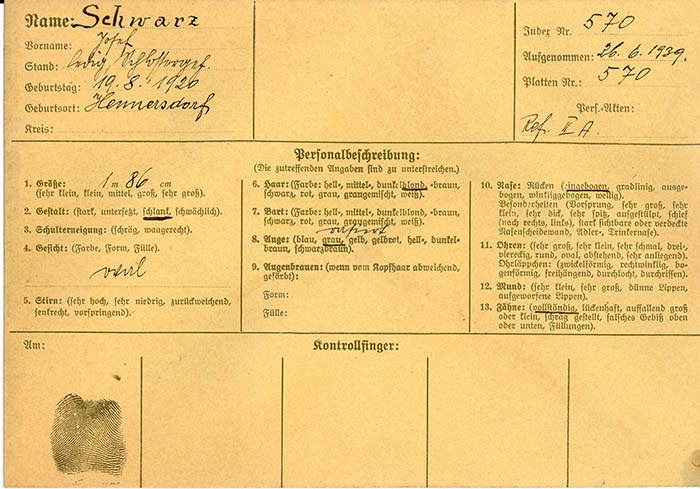 Name: Schwarz
Vorname: Josef
Stand: ledig, Schlossergeh.
Geburtstag: 19. 8. 1920
Geburtsort: Hennersdorf
Kreis:
Index Nr. 570
Aufgenommen: 26. 6. 1939.
Platten Nr.: 570
Pers.-Akten:
Ref. II A.
Personalbeschreibung:
(Die zutreffenden Angaben sind zu unterstreichen.)
1. Größe: 1 m 86 cm
(sehr klein, klein, mittel, groß, sehr groß).
2. Gestalt: (stark, untersetzt, schlank, schwächlich).
3. Schulterneigung: (schräg, waagerecht).
4. Gesicht: (Farbe, Form, Fülle).
oval
5. Stirn: (sehr hoch, sehr niedrig, zurückweichend,
senkrecht, vorspringend).
6. Haar: (Farbe: hell-, mittel-, dunkelblond, -braun,
schwarz, rot, grau, graugemischt, weiß).
7. Bart: (Farbe: hell-, mittel-, dunkelblond, -braun,
schwarz, rot, grau, graugemischt, weiß).
rasiert
8. Auge: (blau, grau, gelb, gelbrot, hell-, dunkel-
braun, schwarzbraun).
9. Augenbrauen: (wenn vom Kopfhaar abweichend,
gefärbt):
Form:
Fülle:
10. Nase: Rücken (eingebogen, gradlinig, ausge-
bogen, winkliggebogen, wellig).
Besonderheiten (Vorsprung, sehr groß, sehr
klein, sehr dick, sehr spitz, aufgestülpt, schief
(nach rechts, links), stark sichtbare oder verdeckte
Nasenscheidewand, Adler-, Trinkernase).
11. Ohren: (sehr groß, sehr klein, sehr schmal, drei-,
viereckig, rund, oval, abstehend, sehr anliegend).
Ohrläppchen: (zwickelförmig, rechtwinklig, bo-
genförmig, freihängend, durchlocht, durchrissen).
12. Mund: (sehr klein, sehr groß, dünne Lippen,
aufgeworfene Lippen).
13. Zähne: (vollständig, lückenhaft, auffallend groß
oder klein, schräg gestellt, falsches Gebiß oben
oder unten, Füllungen).
Am:
Kontrollfinger: